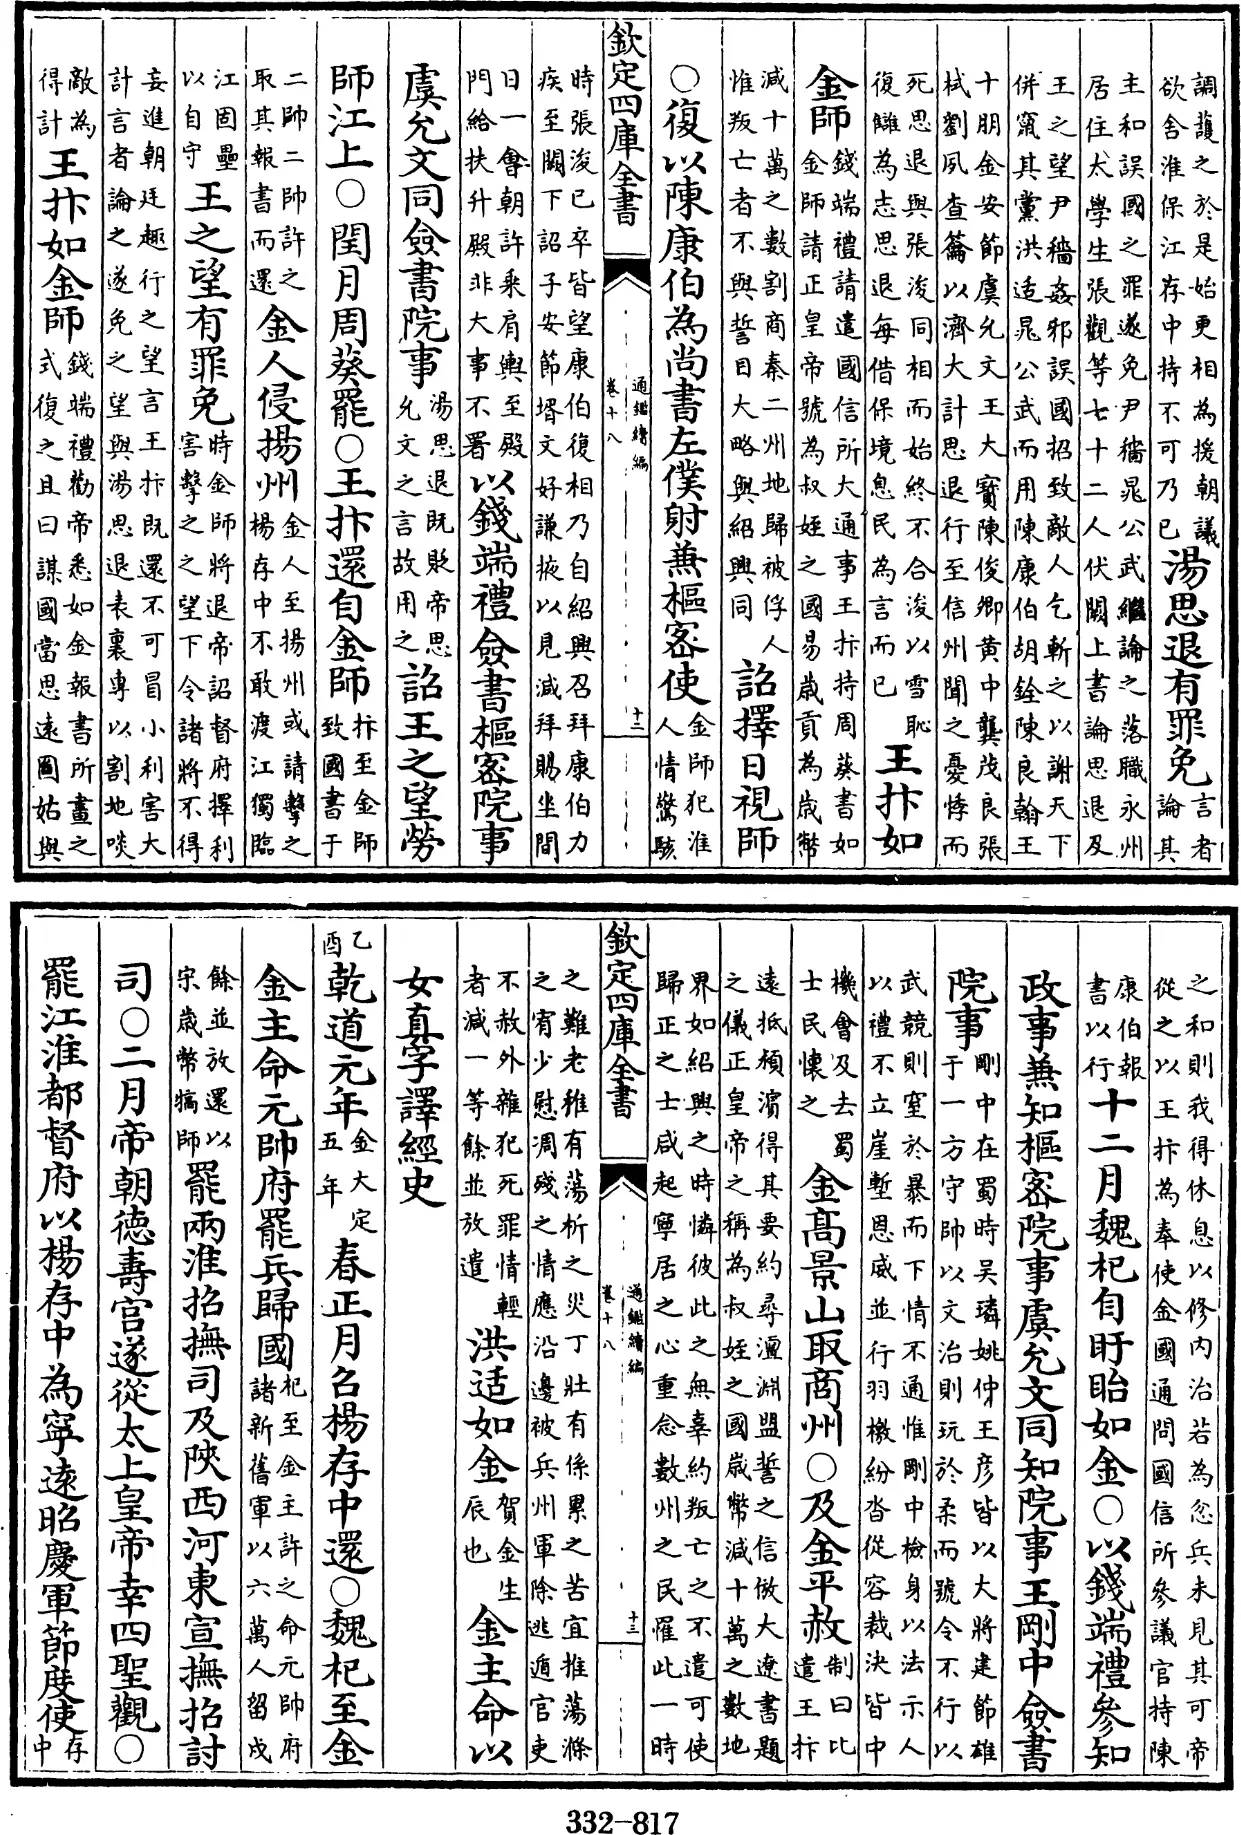 調護之於是始更相為援朝議
欲舍淮保江存中持不可乃已
湯思退有罪免
言者
論其
主和誤國之罪遂免尹穡晁公武繼論之落職永州
居住太學生張觀等七十二人伏闕上書論思退及
王之望尹穡姦邪誤國招致敵人乞斬之以謝天下
併竄其黨洪适晁公武而用陳康伯胡銓陳良翰王
十朋金安節虞允文王大寶陳俊卿黄中龔茂良張
栻劉夙查籥以濟大計思退行至信州聞之憂悸而
死思退與張浚同相而始終不合浚以雪恥
復讎為志思退每借保境息民為言而已
王抃如
金師
錢端禮請遣國信所大通事王抃持周葵書如
金師請正皇帝號為叔姪之國易歲貢為歲幣
減十萬之數割商秦二州地歸被俘人
惟叛亡者不與誓目大略與紹興同
詔擇日視師
○復以陳康伯為尚書左僕射兼樞密使
金師犯淮
人情驚駭
欽定四庫全書
通鑑續編
卷十八
十二
時張浚已卒皆望康伯復相乃自紹興召拜康伯力
疾至闕下詔子安節壻文好謙掖以見減拜賜坐間
日一會朝許乘肩輿至殿
門給扶升殿非大事不署
以錢端禮僉書樞密院事
虞允文同僉書院事
湯思退既貶帝思
允文之言故用之
詔王之望勞
師江上○閏月周葵罷○王抃還自金師
抃至金師
致國書于
二帥二帥許之
取其報書而還
金人侵揚州
金人至揚州或請擊之
楊存中不敢渡江獨臨
江固壘
以自守
王之望有罪免
時金師將退帝詔督府擇利
害擊之之望下令諸將不得
妄進朝廷趣行之望言王抃既還不可冒小利害大
計言者論之遂免之望與湯思退表裏專以割地啖
敵為
得計
王抃如金師
錢端禮勸帝悉如金報書所畫之
式復之且曰謀國當思遠圖姑與
之和則我得休息以修内治若為忿兵未見其可帝
從之以王抃為奉使金國通問國信所參議官持陳
康伯報
書以行
十二月魏杞自盱眙如金○以錢端禮參知
政事兼知樞密院事虞允文同知院事王剛中僉書
院事
剛中在蜀時吳璘姚仲王彦皆以大將建節雄
于一方守帥以文治則玩於柔而號令不行以
武競則窒於暴而下情不通惟剛中檢身以法示人
以禮不立崖塹恩威並行羽檄紛沓從容裁決皆中
機會及去蜀
士民懷之
金髙景山取商州○及金平赦
制曰比
遣王抃
遠抵頻濵得其要約尋澶淵盟誓之信倣大遼書題
之儀正皇帝之稱為叔姪之國歲幣減十萬之數地
界如紹興之時憐彼此之無辜約叛亡之不遣可使
歸正之士咸起寧居之心重念數州之民罹此一時
欽定四庫全書
通鑑續編
卷十八
十三
之難老稚有蕩析之災丁壯有係累之苦宜推蕩滌
之宥少慰凋殘之情應沿邊被兵州軍除逃遁官吏
不赦外雜犯死罪情輕
者減一等餘並放遣
洪适如金
賀金生
辰也
金主命以
女真字譯經史
乙
酉
乾道元年
金大定
五年
春正月召楊存中還○魏杞至金
金主命元帥府罷兵歸國
杞至金主許之命元帥府
諸新舊軍以六萬人留戍
餘並放還以
宋歲幣犒師
罷兩淮招撫司及陜西河東宣撫招討
司○二月帝朝徳壽宫遂從太上皇帝幸四聖觀○
罷江淮都督府以楊存中為寧遠昭慶軍節度使
存
中
332-817